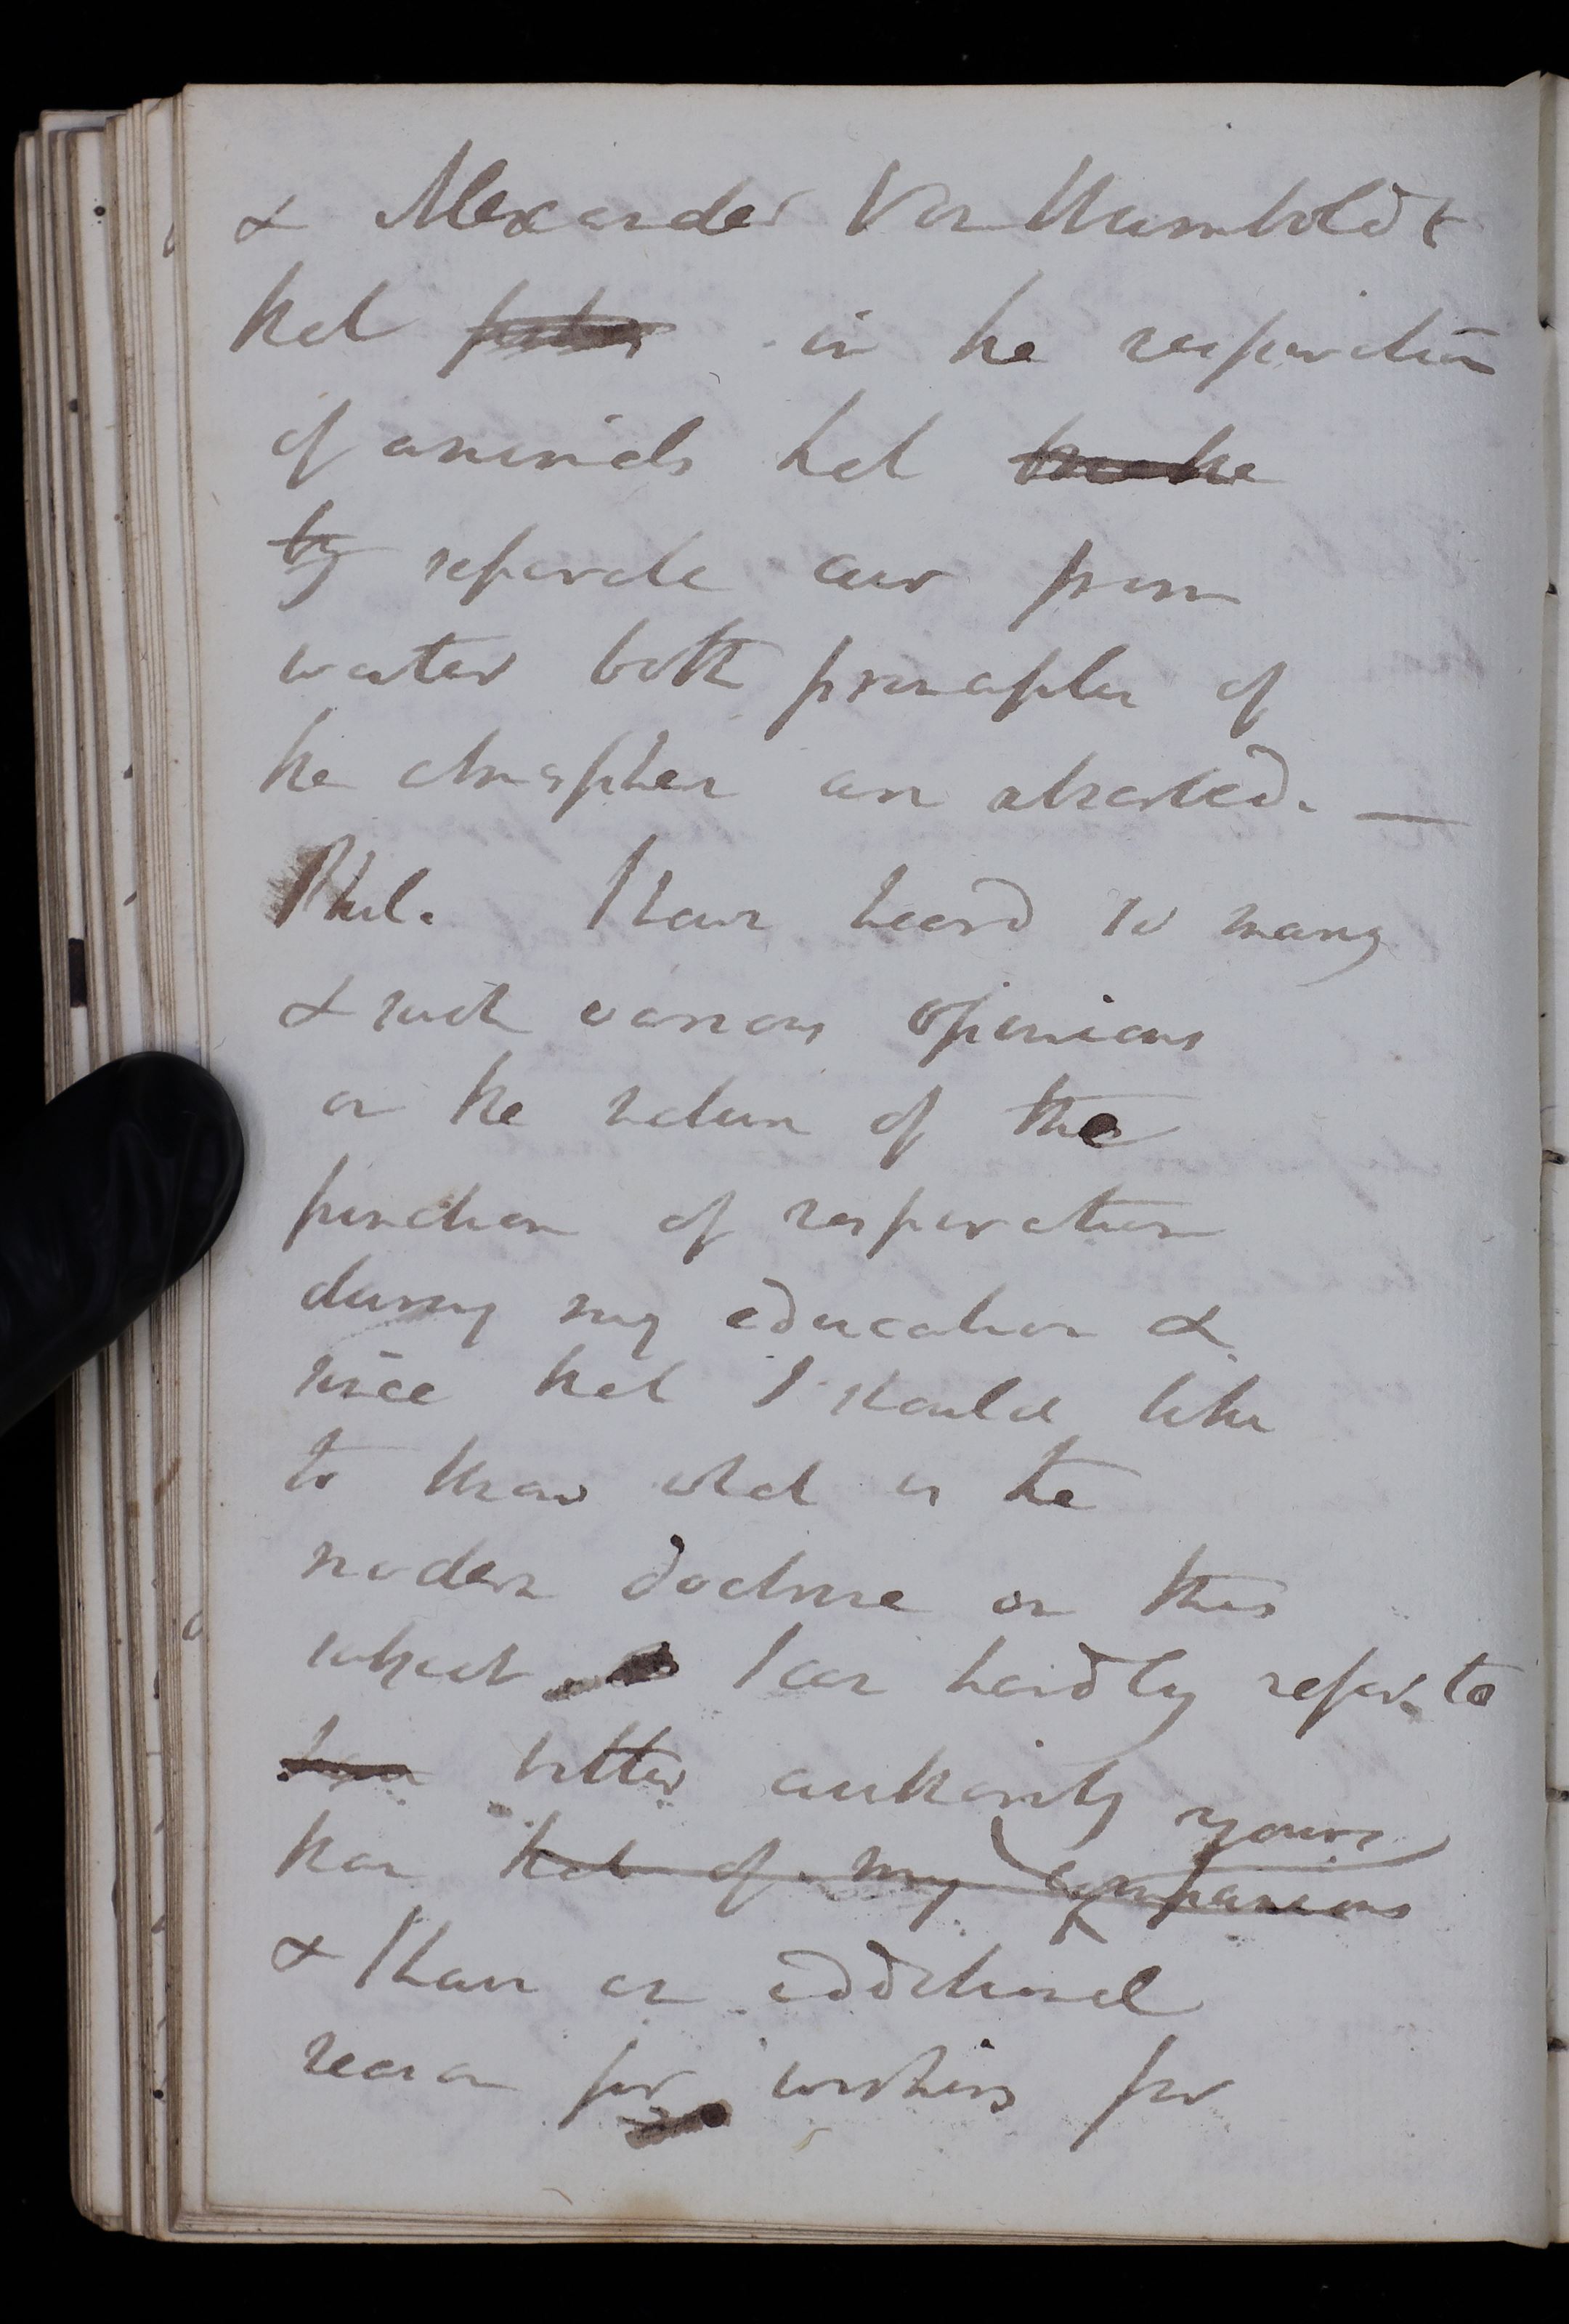 & Alexander Von Humboldt
that in the respiration
of animals that
by separate air from
water both principles of
the atmosphere are abstracted. —
Phil. I have heard so many
& such various opinions
on the nature of the
function of respiration
during my education &
since that I should like
to know what is the
modern doctrine on this
subject I can hardly refer to
better authority yours
than that of my companions
& I have an additional
reason for wishing for